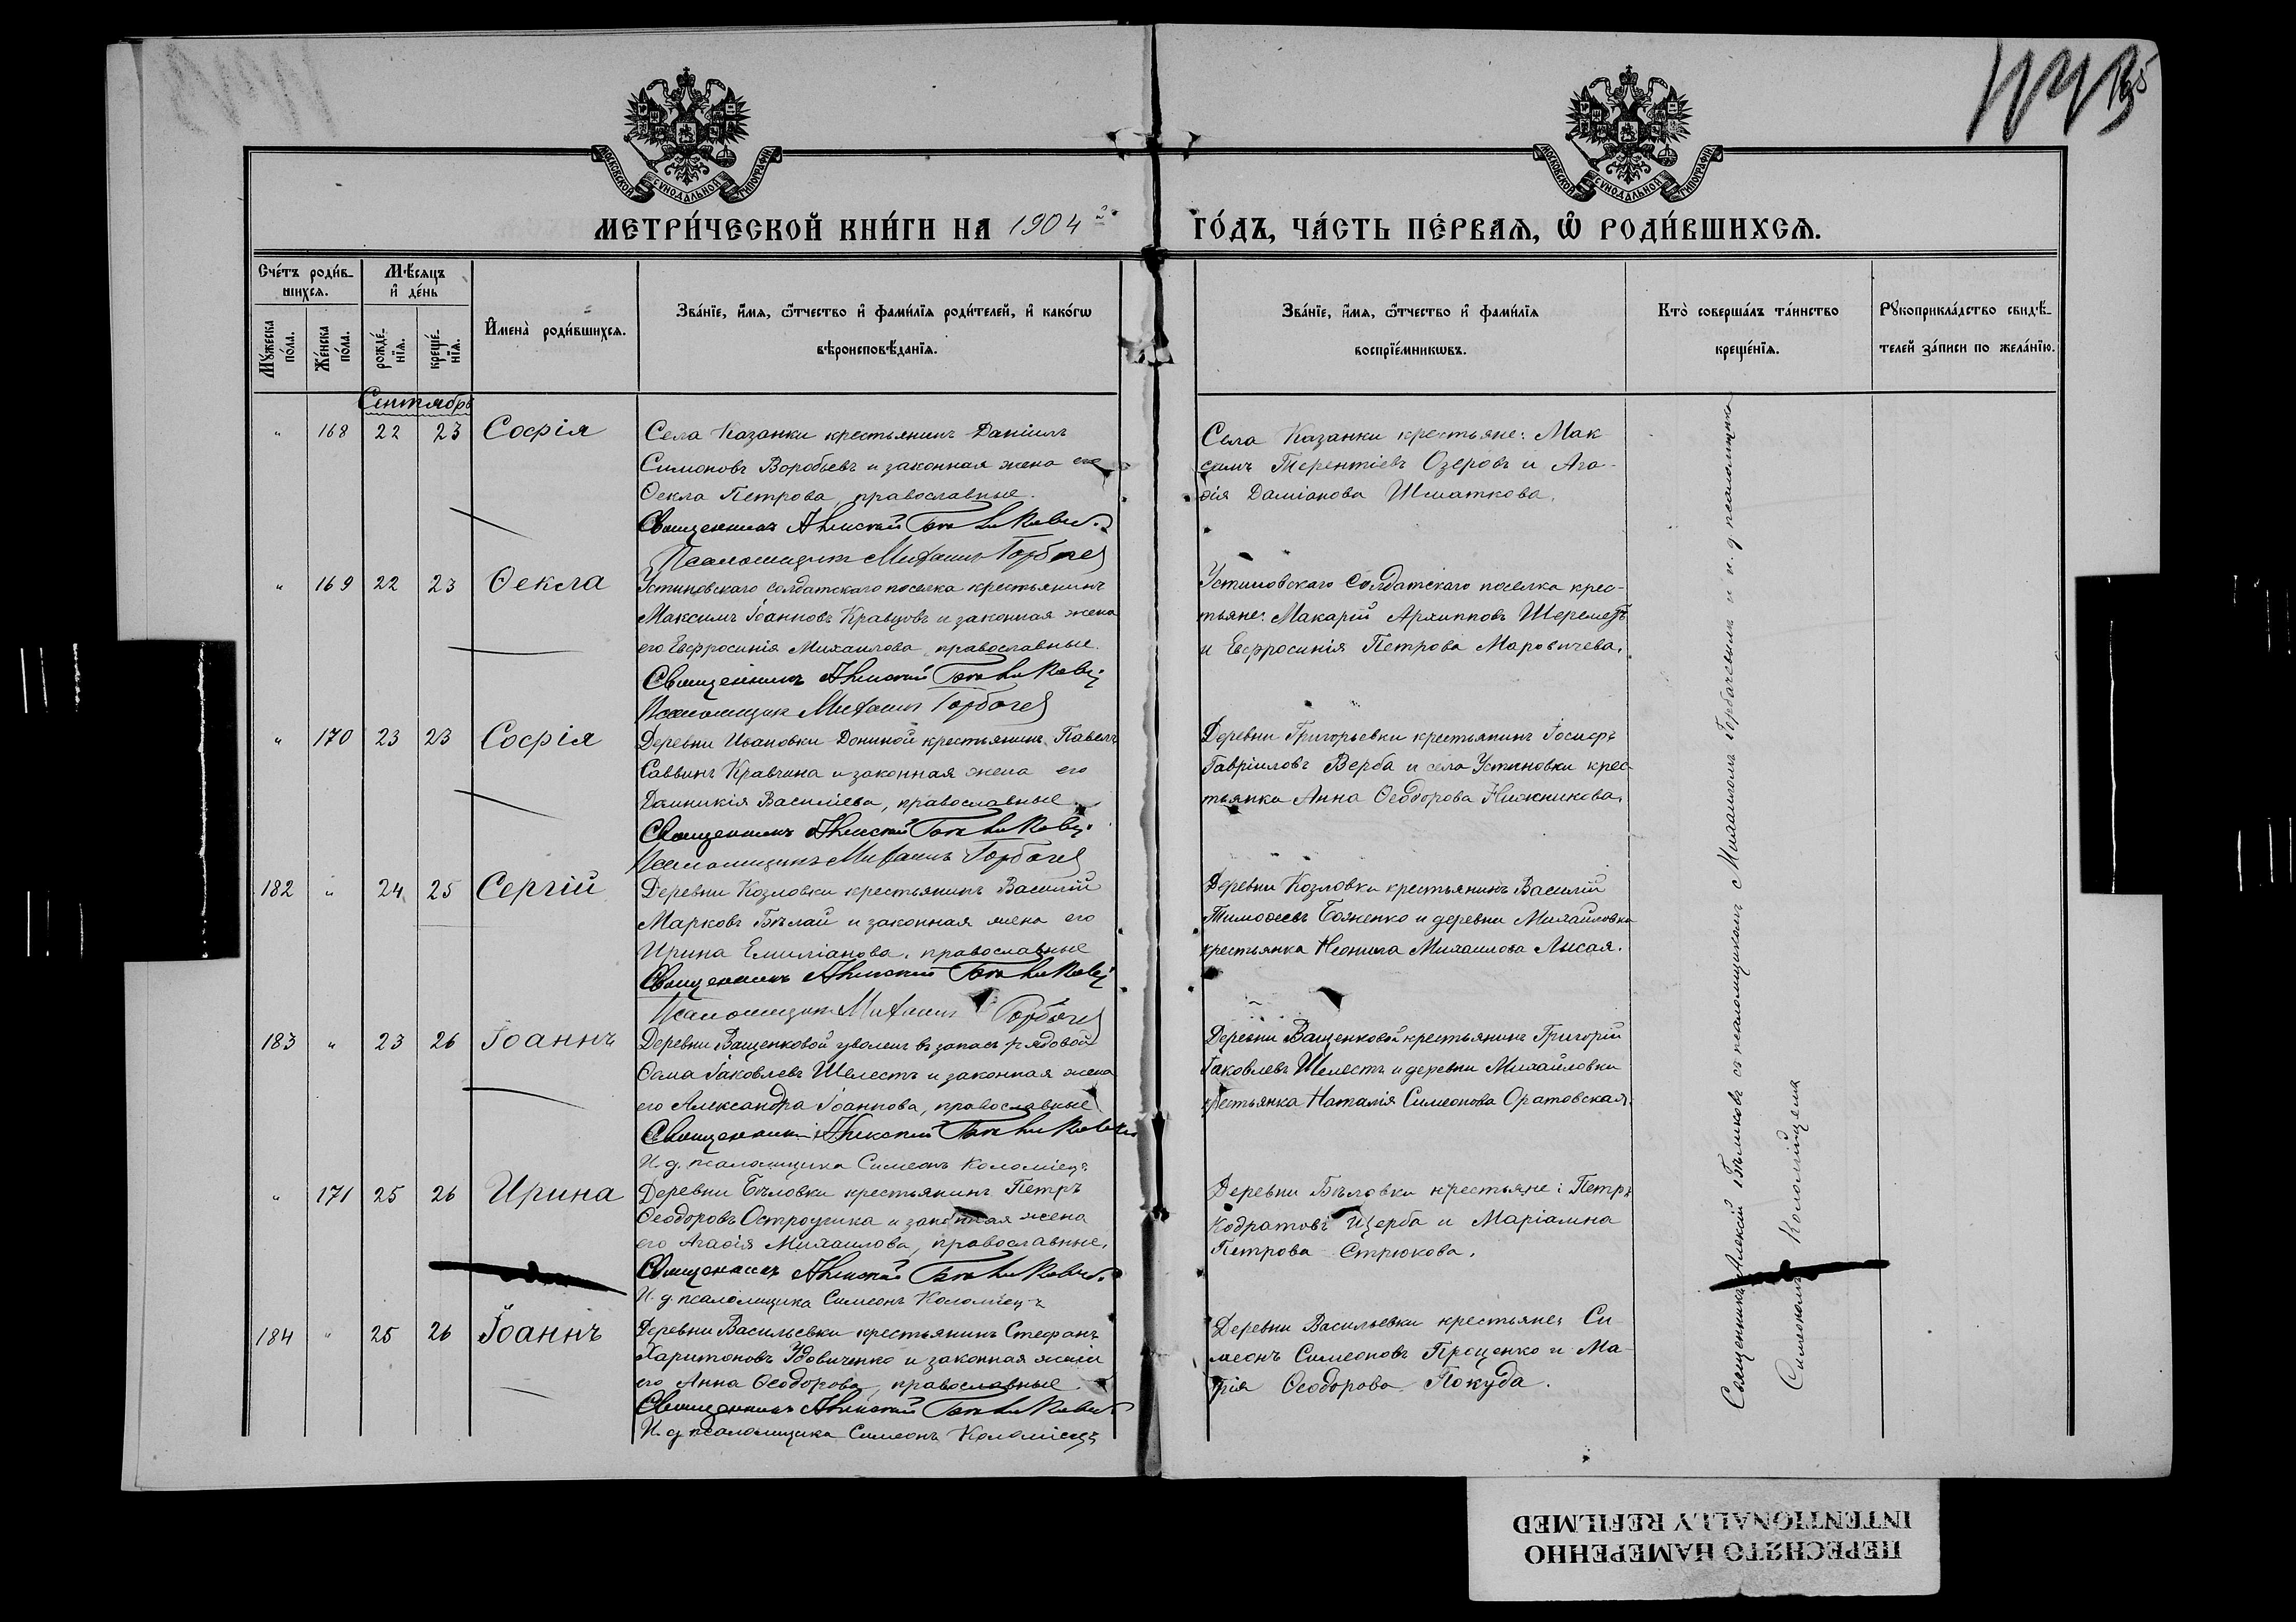 МОСКОВСКОЙ СѴНОДАЛЬНОЙ ТИПОГРАФІИ
МОСКОВСКОЙ СѴНОДАЛЬНОЙ ТИПОГРАФІИ
МЕТРИ́ЧЕСКОЙ КНИ́ГИ НА 1904 й
ГО́ДЪ, ЧА́СТЬ ПЕ́РВАѦ, Ѡ҆ РОДИ́ВШИХСѦ.
Сче́тъ роди́в-
шихсѧ.
Мѣ́сѧцъ
и҆ де́нь
Мꙋ́жеска
по́ла.
Же́нска
по́ла.
рожде́-
нїѧ.
креще́-
нїѧ.
И҆мена̀ роди́вшихсѧ.
Зва́нїе, и҆́мѧ, ѻ҆́тчество и҆ фами́лїѧ роди́телей, и҆ како́гѡ
вѣроисповѣ́данїѧ.
Зва́нїе, и҆́мѧ, ѻ҆́тчество и҆ фами́лїѧ
воспрїе́мникѡвъ.
Кто̀ соверша́лъ та́инство
креще́нїѧ.
Рꙋкоприкла́дство свидѣ́-
телей за́писи по жела́нїю.
Сентябрь
" 168 22 23 Софія
Села Казанки крестьянинъ Даніилъ
Симоновъ Воробьевъ и законная жена его
Ѳекла Петрова, православные.
Священникъ Алексій
Псаломщикъ Михаилъ Горбачев
Села Казанки крестьяне: Мак
симъ Терентіевъ Озеровъ и Ага-
ѳія Даміанова Шматкова.
" 169 22 23 Ѳекла
Устиновскаго Солдатскаго поселка крестьянинъ
Максимъ Іоанновъ Кравцовъ и законная жена
его Евфросинія Михаилова, православные.
Священникъ Алексій
Псаломщик Михаилъ Горбачев
Устиновскаго Солдатскаго поселка крес-
тьяне: Макарій Архипповъ Шереметъ
и Евфросинія Петрова Маровичева.
" 170 23 23 Софія
Деревни Ивановки Дониной крестьянинъ Павелъ
Саввинъ Кравчина и законная жена его
Домникія Василіева, православные.
Священникъ Алексій
Псаломщикъ Михаилъ Горбачев
Деревни Григорьевки крестьянинъ Іосифъ
Гавріиловъ Верба и села Устиновки крес-
тьянка Анна Ѳеодорова Нижникова.
182 " 24 25 Сергій
Деревни Козловки крестьянинъ Василій
Марковъ Бѣлай и законная жена его
Ирина Емиліанова, православные
Священникъ Алексій
Псаломщикъ Михаилъ Горбачев
Деревни Козловки крестьянинъ Василій
Тимоѳеевъ Боженко и деревни Михайловки
крестьянка Неонила Михаилова Лысая.
183 " 23 26 Іоаннъ
Деревни Ващенковой уволен. въ запасъ рядовой
Ѳома Іаковлевъ Шелестъ и законная жена
его Александра Іоаннова, православные
Священникъ Алексій
И. д. псаломщика Симеонъ Коломіецъ
Деревни Ващенковой крестьянинъ Григорій
Іаковлевъ Шелестъ и деревни Михайловки
крестьянка Наталія Симеонова Оратовская.
" 171 25 26 Ирина
Деревни Бѣловки крестьянинъ Петръ
Ѳеодоровъ и законная жена
его Агаѳія Михаилова, православные.
Священникъ Алексій
И. д. псаломщика Симеонъ Коломіецъ
Деревни Бѣловки крестьяне: Петръ
Кодратовъ Щерба и Маріамна
Петрова Стрюкова.
184 " 25 26 Іоаннъ
Деревни Васильевки крестьянинъ Стефанъ
Харитоновъ Удовиченко и законная жена
его Анна Ѳеодорова, православные.
Священникъ Алексій
И. д. псаломщика Симеонъ Коломіецъ
Деревни Васильевки крестьяне: Си
меонъ Симеоновъ Проценко и Ма-
рія Ѳеодорова Покуда.
Священникъ Алексій съ псаломщикомъ Михаиломъ Горбачевымъ и и. д. псаломщика
Симеономъ Коломійцемъ
ПЕРЕСНЯТО НАМЕРЕННО
INTENTIONALLY REFILMED